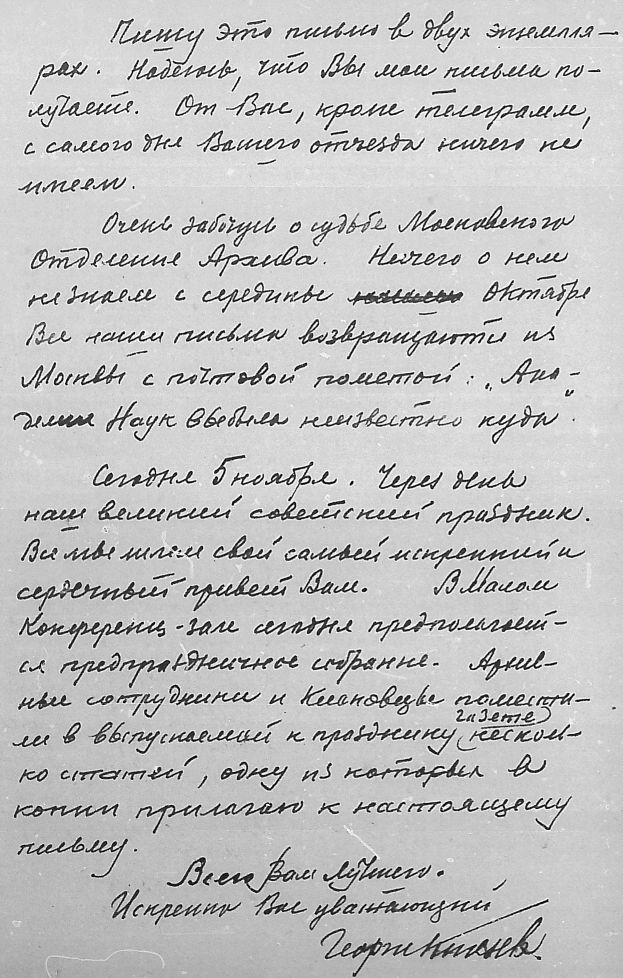 Пишу это письмо в двух экземпля-
рах. Надеюсь, что Вы мои письма по-
лучаете. От Вас, кроме телеграмм,
с самого дня Вашего отъезда ничего не
имеем.
Очень забочусь о судьбе Московского
Отделения Архива. Ничего о нем
не знаем с середины октября
Все наши письма возвращаются из
Москвы с почтовой пометой: „Ака-
демия Наук выбыла неизвестно куда".
Сегодня 5 ноября. Через день
наш великий советский праздник.
Все мы шлем свой самый искренний и
сердечный привет Вам. В Малом
Конференц-зале сегодня предполагает-
ся предпраздничное собрание. Архив-
ные сотрудники и помести-
ли в выпускаемой к празднику (газете) несколь-
ко статей, одну из которых в
копии прилагаю к настоящему
письму.
Всего Вам лучшего.
Искренно Вас уважающий
Георг Князев.